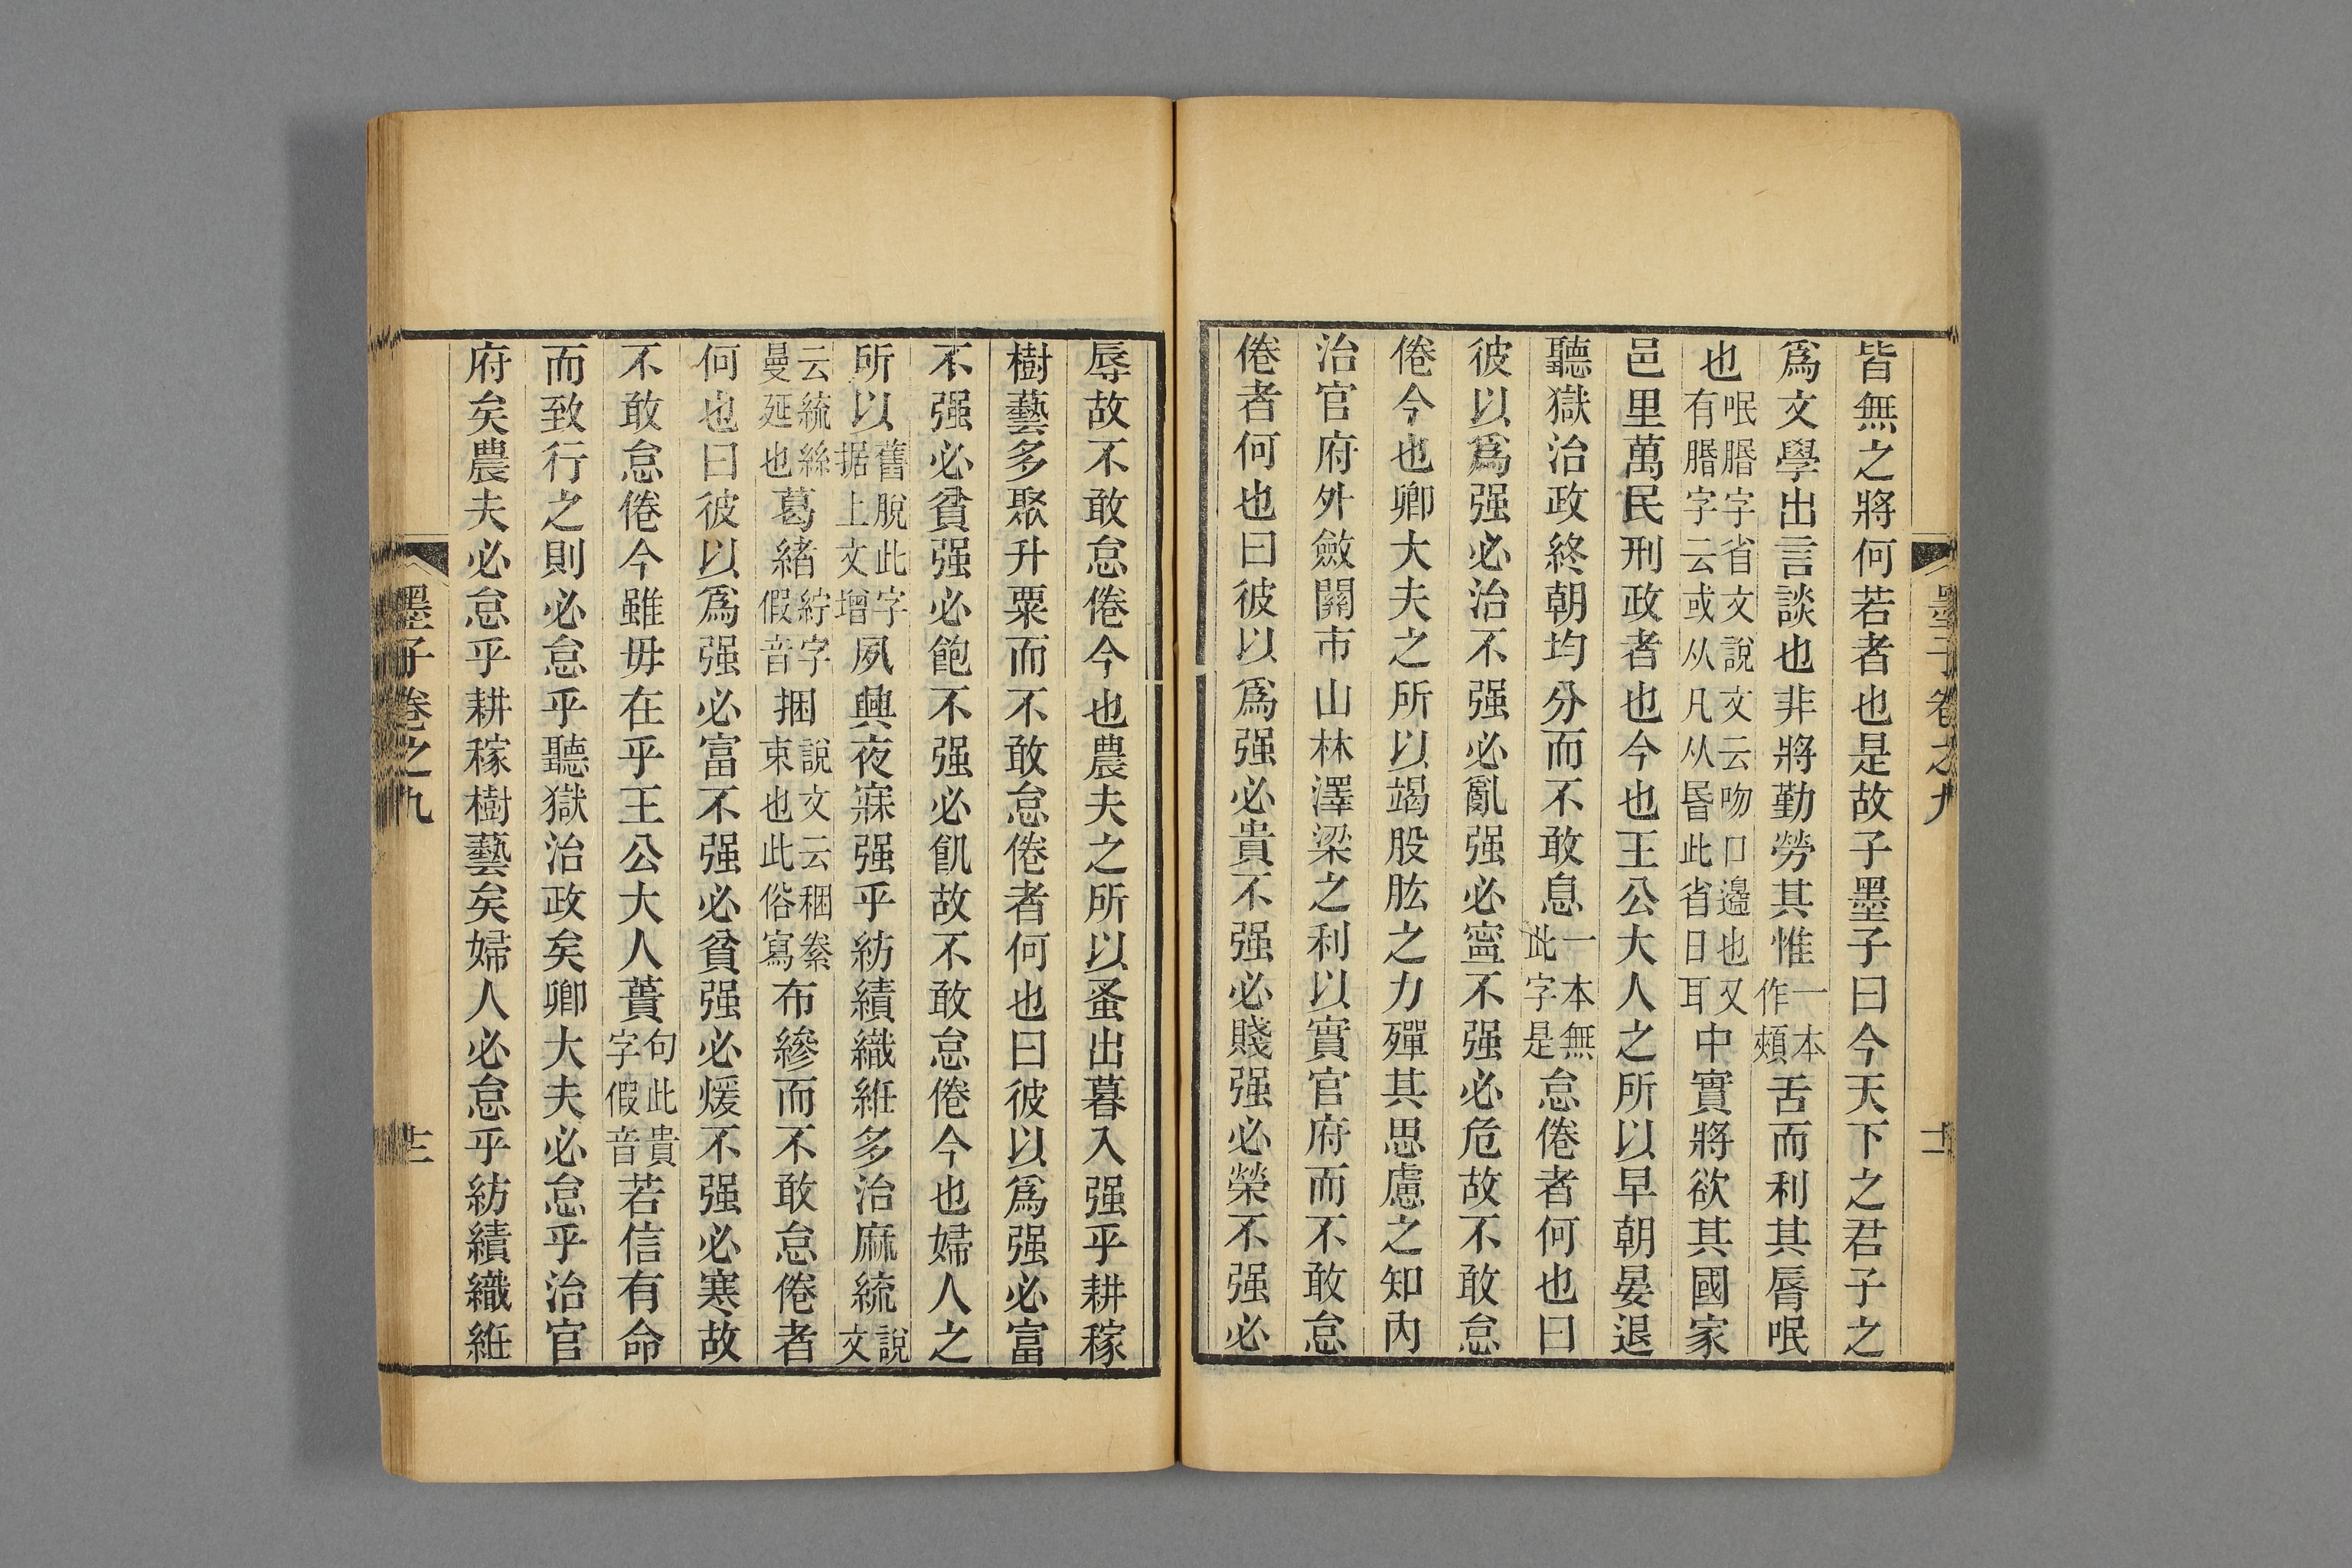 墨子卷之九
十二
皆無之將何若者也是故子墨子曰今天下之君子之
爲文學出言談也非將勤勞其惟一本作頰舌而利其脣呡
也呡䐇字省文說文云吻口邊也又有䐇字云或从凡从昬此省日耳中實將欲其國家
邑里萬民刑政者也今也王公大人之所以早朝晏退
聽獄治政終朝均分而不敢息一本無此字是怠倦者何也曰
彼以爲强必治不强必亂强必寍不强必危故不敢怠
倦今也卿大夫之所以竭股肱之力殫其思慮之知內
治官府外斂關市山林澤梁之利以實官府而不敢怠
倦者何也曰彼以爲强必貴不强必賤强必榮不强必
辱故不敢怠倦今也農夫之所以蚤出暮入强乎耕稼
樹藝多聚升粟而不敢怠倦者何也曰彼以爲强必富
不强必貧强必飽不强必飢故不敢怠倦今也婦人之
所以舊脫此字据上文增夙興夜寐强乎紡績織絍多治麻統說文
云統絲曼延也葛緒紵字假音捆說文云稇絭束也此俗寫布縿而不敢怠倦者
何也曰彼以爲强必富不强必貧强必煖不强必寒故
不敢怠倦今雖毋在乎王公大人蕢句此貴字假音若信有命
而致行之則必怠乎聽獄治政矣卿大夫必怠乎治官
府矣農夫必怠乎耕稼樹藝矣婦人必怠乎紡績織絍
墨子卷之九
十三